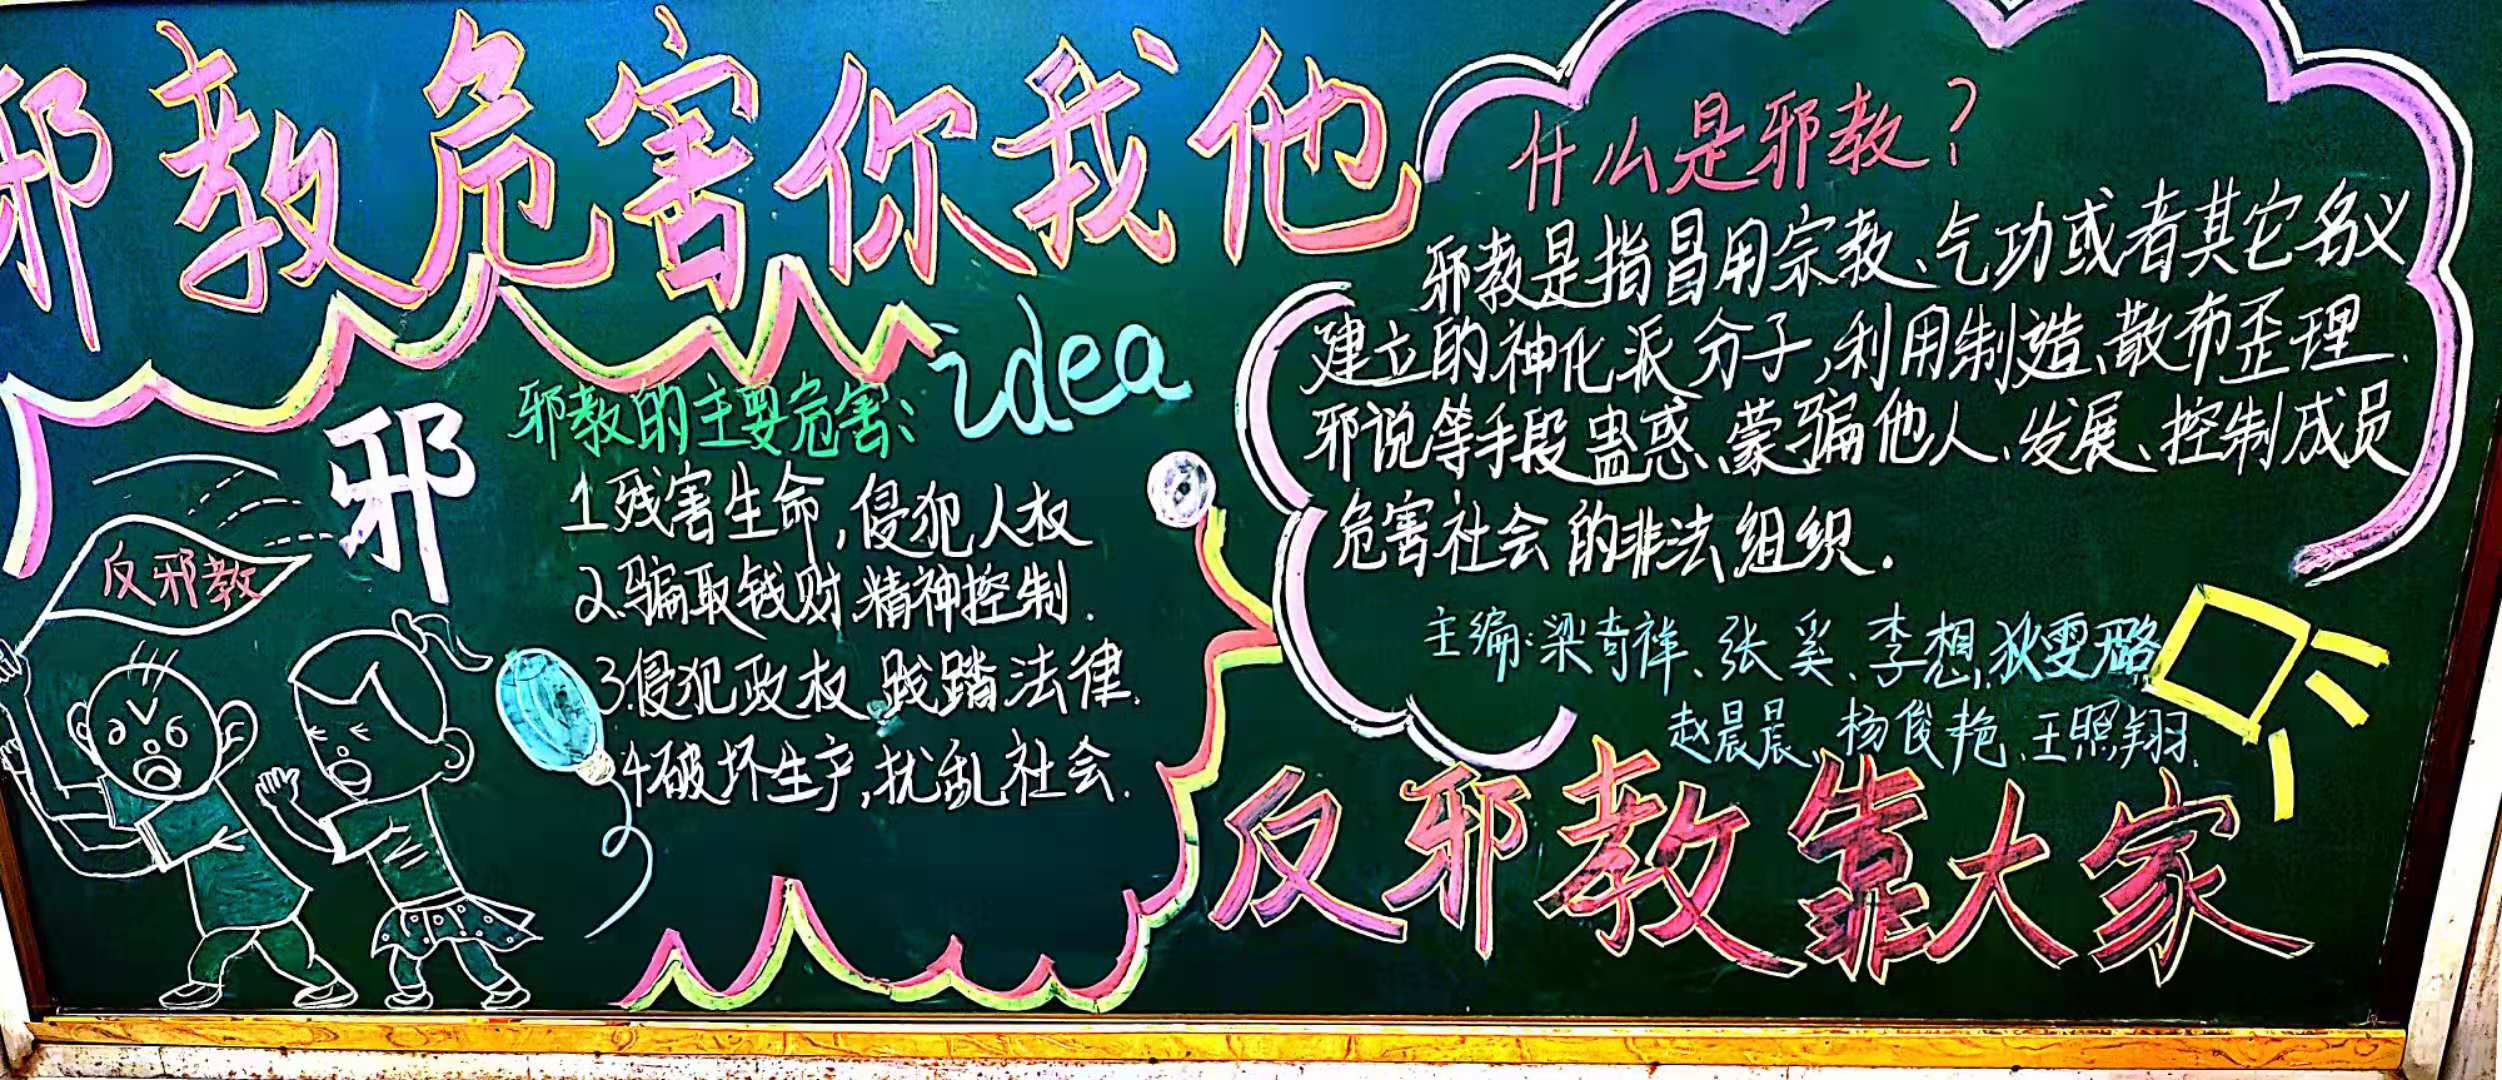 邪教危害你我他
什么是邪教?
邪教是指冒用宗教、气功或者其它名义
建立的神化派分子,利用制造、散布歪理、
邪说等手段蛊惑、蒙骗他人、发展、控制成员
危害社会的非法组织.
主编:梁奇祥、张奚、李想,狄雯璐,
赵晨晨、杨俊艳、王照翔.
反邪教靠大家
idea
邪教的主要危害:
1.残害生命,侵犯人权
2.骗取钱财,精神控制.
3.侵犯政权,践踏法律.
4.破坏生产,扰乱社会.
邪
反邪教